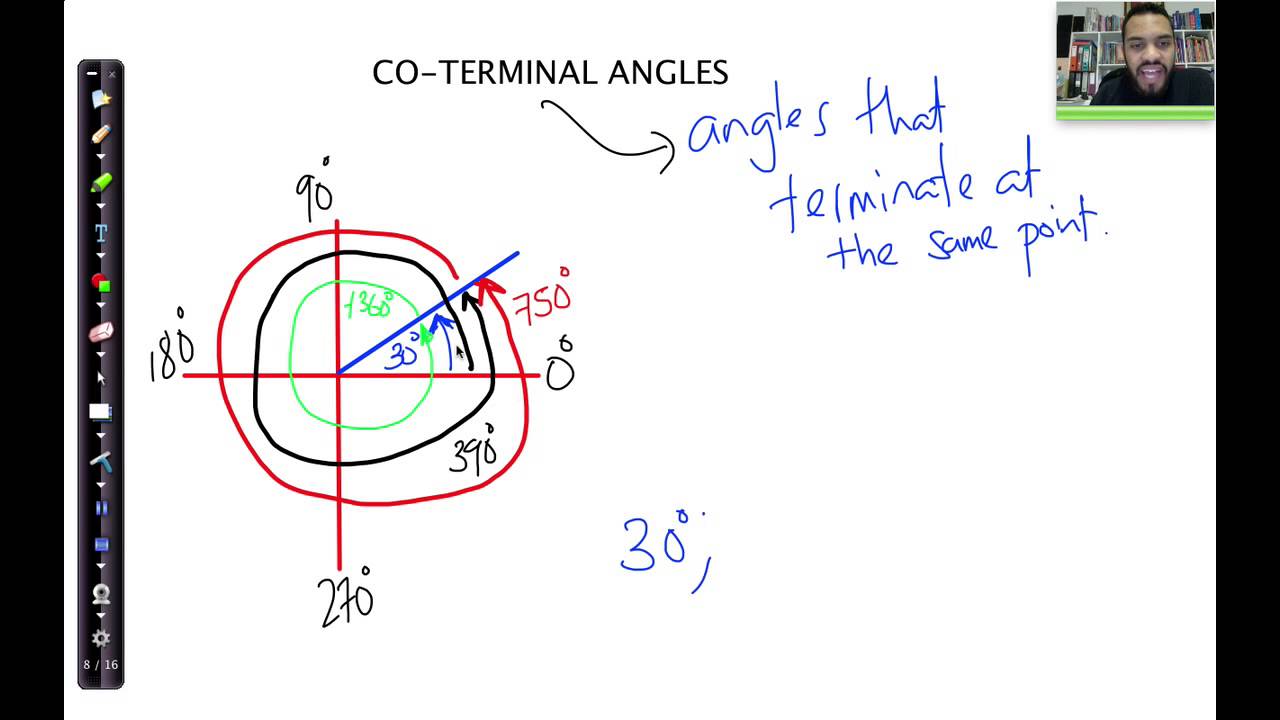 CO-TERMINAL ANGLES
angles that
terminate at
the same point.
90°
+360°
750°
180°
30°
0°
390°
30°;
270°
T
8 / 16